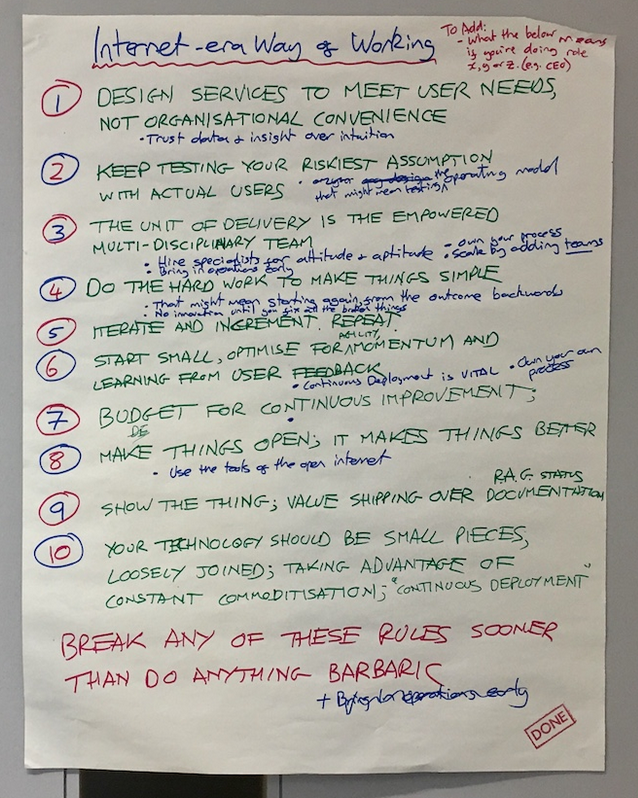 Internet-era Way of Working
To Add:
- what the below means
if you're doing role
x, y or z. (e.g. CEO)
1 DESIGN SERVICES TO MEET USER NEEDS,
NOT ORGANISATIONAL CONVENIENCE
• Trust data + insight over intuition
2 KEEP TESTING YOUR RISKIEST ASSUMPTION
WITH ACTUAL USERS
• the operating model
that might mean testing
3 THE UNIT OF DELIVERY IS THE EMPOWERED
MULTI-DISCIPLINARY TEAM
• Hire specialists for attitude + aptitude
• Bring in operations early
- own your process
• Scale by adding teams
4 DO THE HARD WORK TO MAKE THINGS SIMPLE
• That might mean starting again, from the outcome backwards
• No innovation until you fix all the broken things
5 ITERATE AND INCREMENT. REPEAT.
6 START SMALL, OPTIMISE FOR AGILITY MOMENTUM AND
LEARNING FROM USER FEEDBACK
• Continuous Deployment is VITAL
• Own your own
process
7 BUDGET FOR CONTINUOUS IMPROVEMENT;
DE
8 MAKE THINGS OPEN; IT MAKES THINGS BETTER
• Use the tools of the open internet
R.A.G. STATUS
9 SHOW THE THING; VALUE SHIPPING OVER DOCUMENTATION
10 YOUR TECHNOLOGY SHOULD BE SMALL PIECES,
LOOSELY JOINED; TAKING ADVANTAGE OF
CONSTANT COMMODITISATION; "CONTINUOUS DEPLOYMENT"
BREAK ANY OF THESE RULES SOONER
THAN DO ANYTHING BARBARIC
+ Bring in operations early
DONE